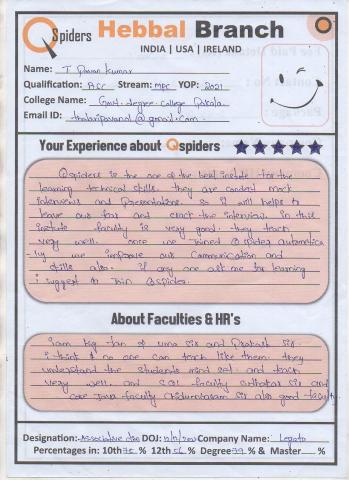 Qspiders Hebbal Branch
INDIA | USA | IRELAND
Name: T Pavan kumar
Qualification: BSC Stream: MPC YOP: 2021
College Name: Govt. degree college Pakala
Email ID: thalaripavanal@gmail.com
Your Experience about Qspiders
Qspiders is the one of the best instute for the
learning technical skills. they are conduct mock
interviews and Presentations. so it will helps to
leave our fear and crack the interview. in this
instute faculty is very good. they teach
very well. once we Joined Qspider automatica
lly we improve our Communication and
skills also. if any one ask me for learning
i suggest to Join Qspider.
About Faculties & HR's
iam big fan of uma sir and Prakash sir.
i think no one can teach like them. they
understand the students mind set and teach
very well. and SQL faculty sir and
core Java faculty sir is also good faculty
Designation: Associative DOJ: Company Name: Legato
Percentages in: 10th 75 % 12th 56 % Degree 79 % & Master % &